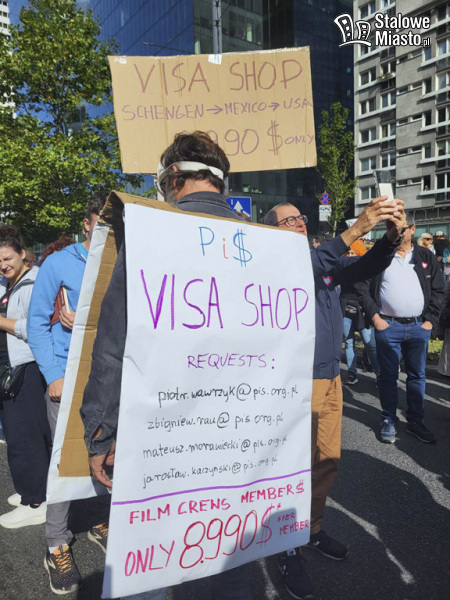 Stalowe
Miasto.pl
VI$A SHOP
SCHENGEN→MEXICO→USA
8990 $ ONLY
Pi$
VISA SHOP
REQUESTS:
piotr.wawrzyk@pis.org.pl
zbigniew.rau@pis.org.pl
mateusz.morawiecki@pis.org.pl
jarosław.kaczyński@pis.org.pl
FILM CREWS MEMBER$
ONLY 8.990$* *PER MEMBER